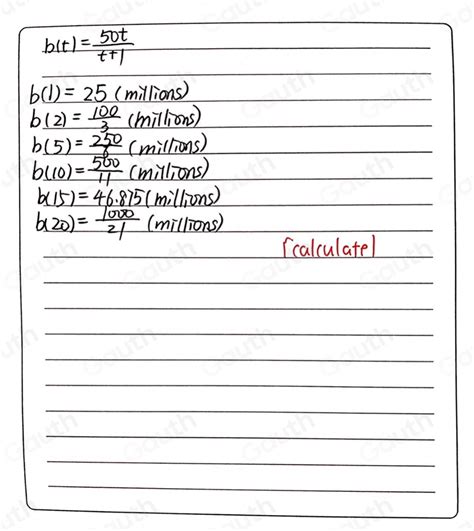 b(t) = 50t/t+1
b(1) = 25 (millions)
b(2) = 100/3 (millions)
b(5) = 250/6 (millions)
b(10) = 500/11 (millions)
b(15) = 46.875 (millions)
b(20) = 1000/21 (millions)
[calculate]
Gauth